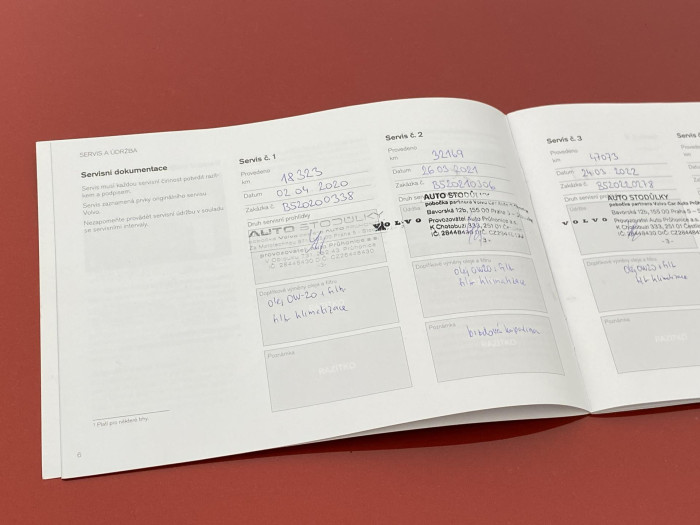 SERVIS A ÚDRŽBA
Servisní dokumentace
Servis musí každou servisní činnost potvrdit razít-
kem a podpisem.
Servis zaznamená prvky originálního servisu
Volvo.
Nezapomeňte provádět servisní údržbu v souladu
se servisními intervaly.
1 Platí pro některé trhy.
6
Servis č. 1
Provedeno
km 18323
Datum 02.04.2020
Zakázka č. BS20200338
Druh servisní prohlídky
AUTO STODŮLKY
Doplňkové výměny oleje a filtru
olej 0W-20 i filtr
filtr klimatizace
Poznámka
RAZÍTKO
Servis č. 2
Provedeno
km 32149
Datum 26.03.2021
Zakázka č. BS20210306
Druh servisní
AUTO STODŮLKY
VOLVO
Bavorská 12b, 155 00 Praha 5
Provozovatel Auto Průhonice a.s.
K Chotobuzi 333, 251 01
-3-
Doplňkové výměny oleje a filtru
olej 0W20 i filtr
filtr klimatizace
Poznámka
brzdová kapalina
RAZÍTKO
Servis č. 3
Provedeno
km 47073
Datum 24.03.2022
Zakázka č. BS20220278
Druh servisní
AUTO STODŮLKY
VOLVO
Bavorská 12b, 155 00 Praha 5
Provozovatel Auto Průhonice a.s.
K Chotobuzi 333, 251 01 Čestlice
-3-
Doplňkové výměny oleje a filtru
olej 0W20 i filtr
filtr klimatizace
Poznámka
RAZÍTKO
Servis č.
Provedeno
km
Datum
Zakázka
Druh